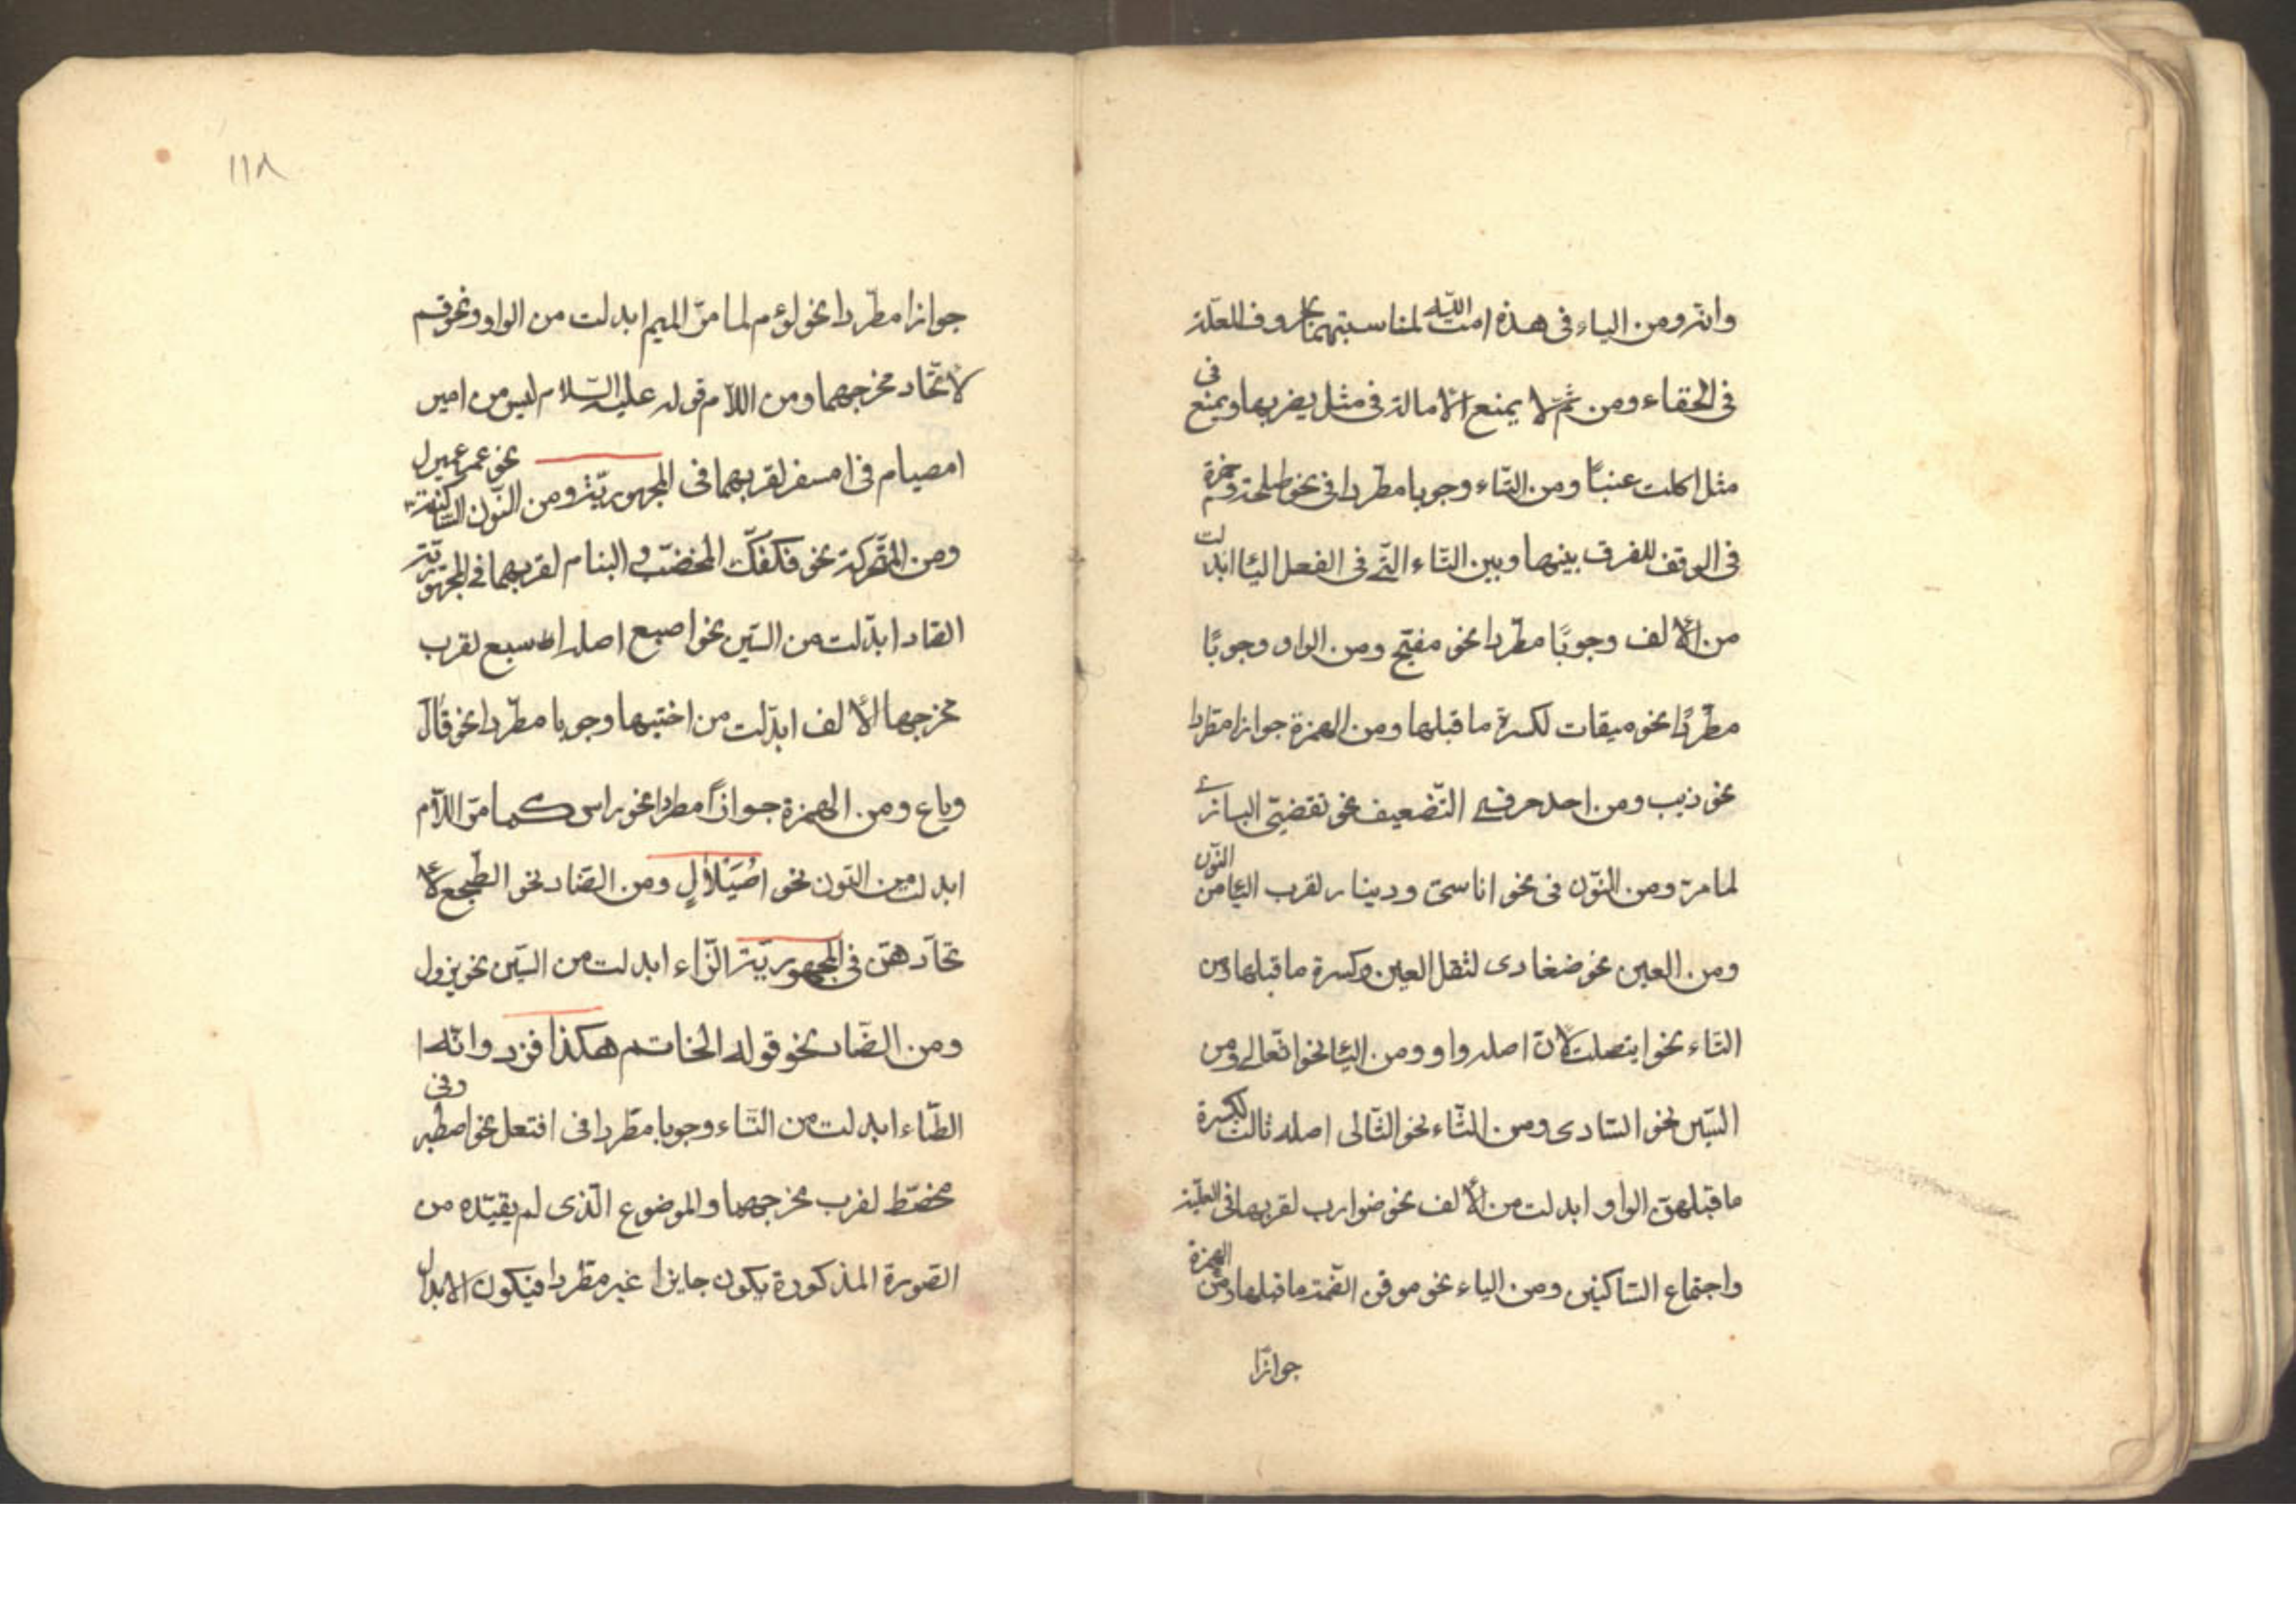 وانه ومن الياء فى هذه امت الله لمناسبتهما بحروف العلة
فى الحفاء ومن ثم لا يمنع الامالة فى مثل يضربها ويمنع فى
مثل اكلت عنبا ومن التاء وجوبا مطردا فى نحو طلحة
فى الوقف للفرق بينها وبين التاء التى فى الفعل اليا ابدلت
من الالف وجوبا مطردا نحو مفتيح ومن الواو وجوبا
مطردا نحو ميقات لكسرة ما قبلها ومن الهمزة جوازا مطردا
نحو ذيب ومن احد حرفى التضعيف نحو تقضى البازى
لما مر ومن النون فى نحو اناسى ودينار لقرب اليا من النون
ومن العين نحو ضفادى لثقل العين وكسرة ما قبلها ومن
التاء نحو ايتصلت لان اصله واو ومن اليا نحو اتعالى ومن
السين نحو السادى ومن الثاء نحو الثالى اصله ثالث لكسرة
ما قبلهن الواو ابدلت من الالف نحو ضوارب لقربهما فى العلية
واجتماع الساكنين ومن الياء نحو موقن لضمة ما قبلها ومن الهمزة
جوازا
١١٨
جوازا مطردا نحو لوم لما مر الميم ابدلت من الواو نحو فم
لاتحاد مخرجهما ومن اللام قوله عليه السلام ليس من امبر
امصيام فى امسفر لقربهما فى المجهورية ومن النون الساكنة نحو عمبر
ومن المتحركة نحو فكفك المخضب البنام لقربهما فى المجهورية
الصاد ابدلت من السين نحو اصبع اصله اسبع لقرب
مخرجهما الالف ابدلت من اختيها وجوبا مطردا نحو قال
وباع ومن الهمزة جوازا مطردا نحو راس كما مر اللام
ابدلت من النون نحو اصيلال ومن الضاد نحو الطجع لا
تحادهن فى المجهورية الزاء ابدلت من السين نحو يزدل
ومن الصاد نحو قوله الحاتم هكذا فزدى انه
الطاء ابدلت من التاء وجوبا مطردا فى افتعل نحو اصطبر وفى
محصط لقرب مخرجهما والموضوع الذى لم يقيده من
الصورة المذكورة يكون جايزا غير مطردا فيكون الابدال